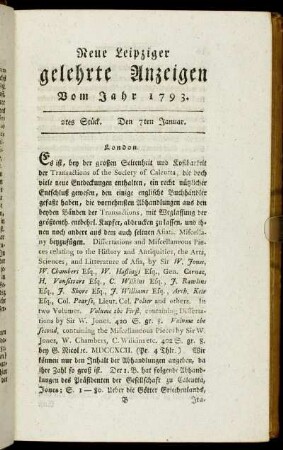 Neue Leipziger
gelehrte Anzeigen
Vom Jahr 1793.
2tes Stück. Den 7ten Januar.
London
Es ist, bey der großen Seltenheit und Kostbarkeit
der Transactions of the Society of Calcutta, die doch
viele neue Entdeckungen enthalten, ein recht nützlicher
Entschluß gewesen, den einige englische Buchhändler
gefaßt haben, die vornehmsten Abhandlungen aus den
beyden Bänden der Transactions, mit Weglassung der
größtentheils entbehrl. Kupfer, abdrucken zu lassen, und ih-
nen noch andere aus den auch seltnen Asiat. Miscella-
ny beyzufügen. Dissertations and Miscellaneous Pie-
ces relating to the History and Antiquities, the Arts,
Sciences, and Litterature of Asia, by Sir W. Jones,
W. Chambers Esq., W. Hastings Esq., Gen. Carnac,
H. Vansittart Esq., C. Wilkins Esq., J. Rawlins
Esq., J. Shore Esq., J. Williams Esq., Arch. Keir
Esq., Col. Pearse, Lieut. Col. Polier and others. In
two Volumes. Volume the First, containing Disserta-
tions by Sir W. Jones. 410 S. gr. 8. Volume the
second, containing the Miscellaneous Pieces by Sir W.
Jones, W. Chambers, C. Wilkins etc. 402 S. gr. 8.
bey G. Nicol rc. MDCCXCII. (Pr. 4 Thlr.) Wir
können nur den Inhalt der Abhandlungen angeben, da
ihr Zahl so groß ist. Der 1. B. hat folgende Abhand-
lungen des Präsidenten der Gesellschaft zu Calcutta,
Jones: S. 1 — 80. Ueber die Götter Griechenlands,
B Ita-